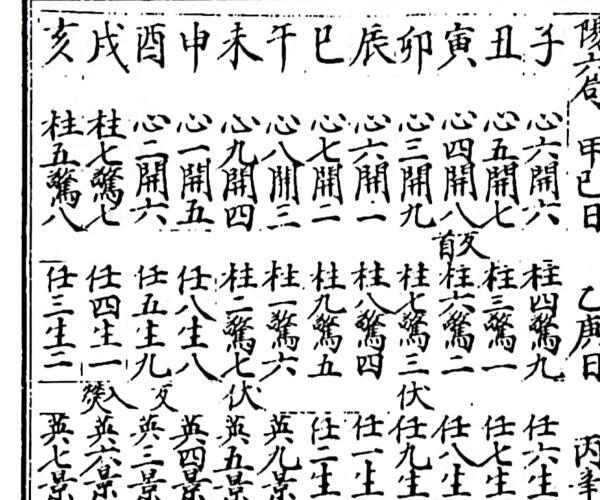 陰六局 甲巳日 乙庚日 丙辛
子 心六開六 柱四驚九 任六生
丑 心五開七 柱三驚一 任七生
寅 心四開八 反首 柱六驚二 任八生
卯 心三開九 柱七驚三 伏 任九生
辰 心六開一 柱八驚四 任一生
巳 心七開二 柱九驚五 任二生
午 心八開三 柱一驚六 英九景
未 心九開四 柱二驚七 伏 英五景
申 心一開五 任八生八 英四景
酉 心二開六 任五生九 反 英三景
戌 柱七驚七 任四生一 入熒 英六景
亥 柱五驚八 任三生二 英七景